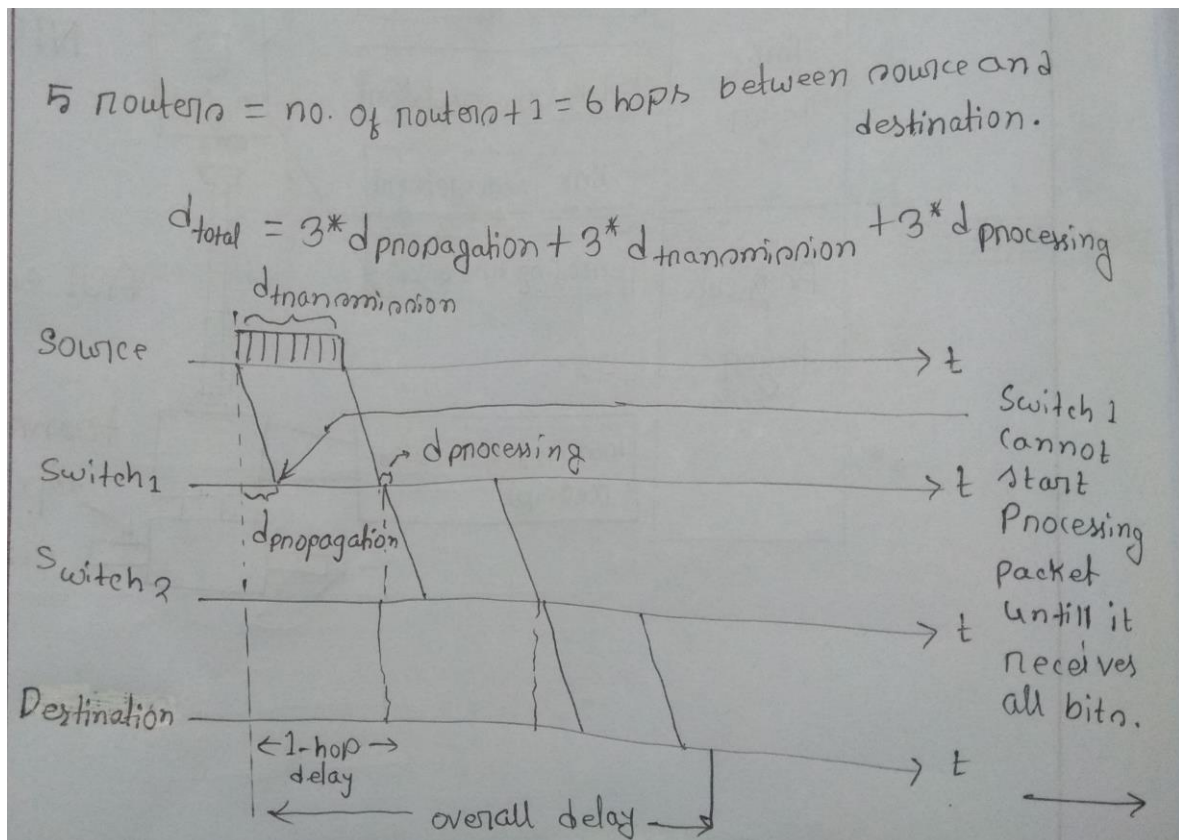 5 routers = no. of routers+1 = 6 hops between source and
destination.
d total = 3* d propagation + 3* d transmission + 3* d processing
d transmission
Source
t
Switch 1
cannot
start
Processing
packet
untill it
receives
all bits.
d processing
Switch1
t
d propagation
Switch2
t
Destination
1-hop
delay
t
overall delay